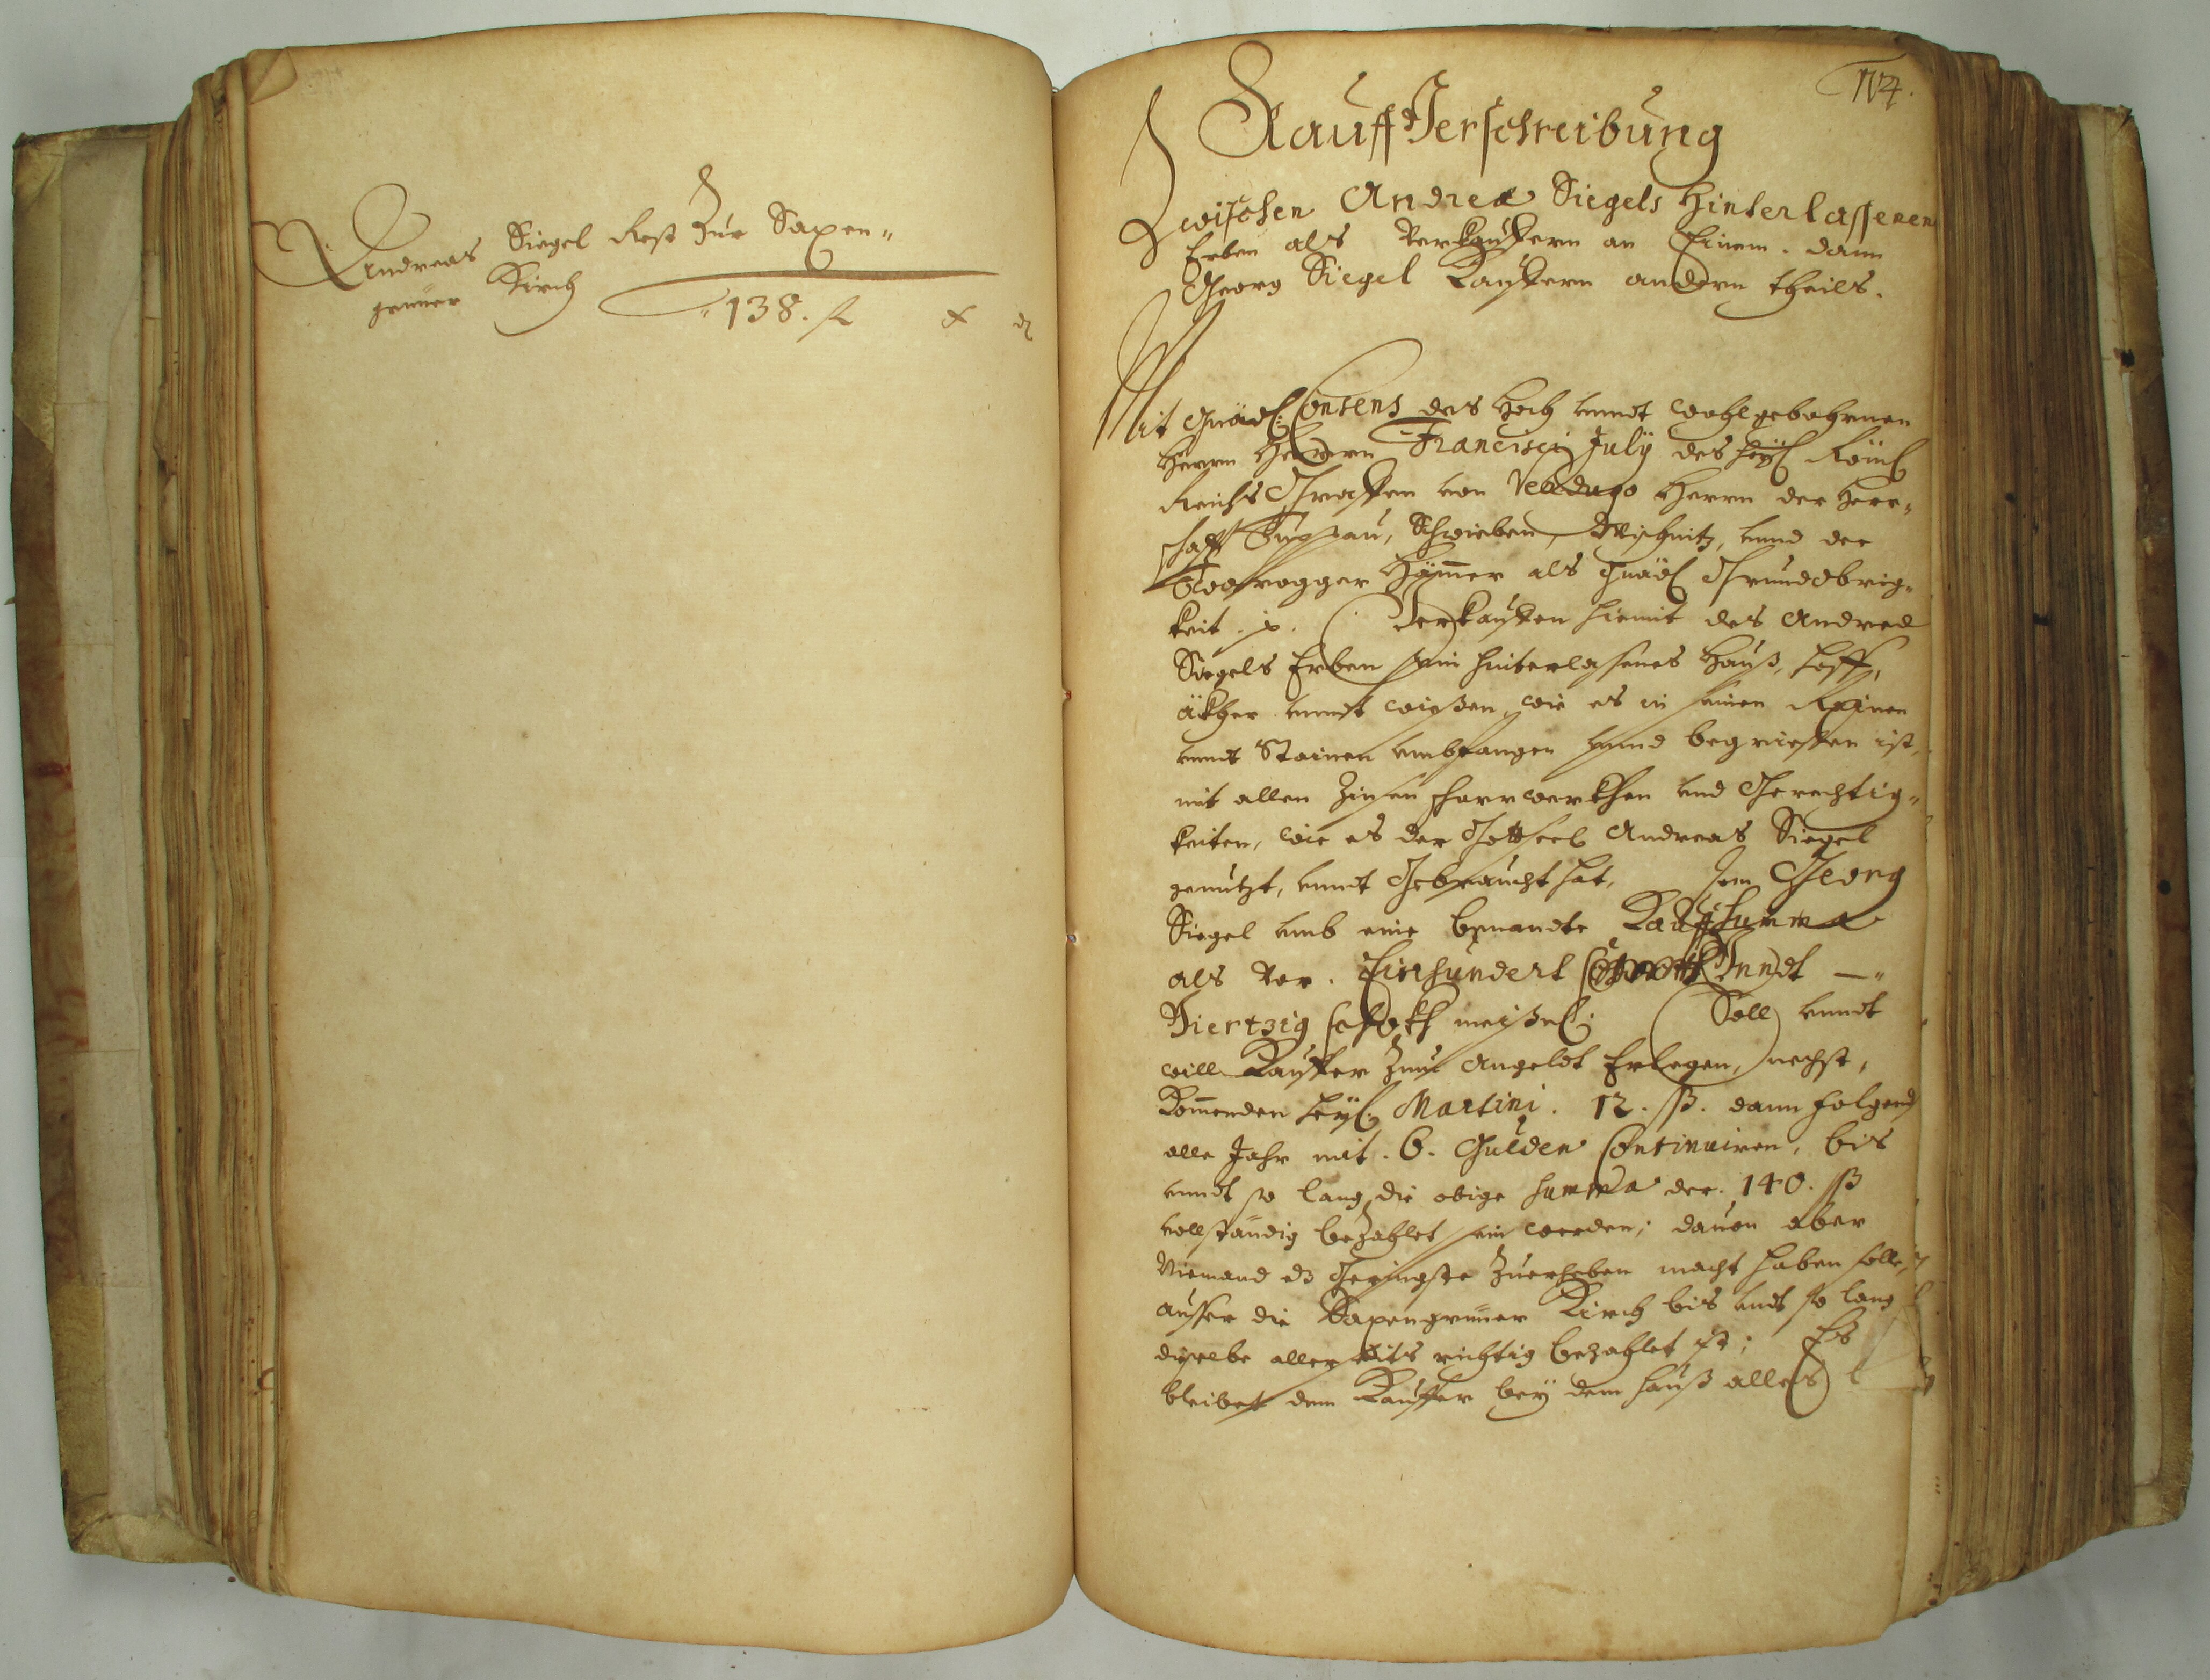 Andreas Siegel Rest Zur Saxen"
gruner Kirch
"138. fl x d
174.
Kauff Verschreibung
Zwischen Andreæ Siegels Hinterlassenen
Erben als Verkauffern an Einem. dann
Georg Siegel Kauffern andern theils.
Mit Gnäd: Consens des Hoch unndt Wohlgebohrnen
Herrn Herrn Francisci July des heyl Röm
Reichs Graffen von Verdugo Herrn der Herr"
schafft Duppau, Schwieben, Mischnitz, unnd der
Hämmer als Gnäd Grundobrig"
keit. x. Verkauffen hiemit des Andreæ
Siegels Erben sein hinterlassenes Hauß, Hoff,
äkher unndt Wießen, wie es in seinen Reinen
unndt Stainen umbfangen unnd begrieffen ist,
mit allen Zinsen fharrwerkhen und Gerechtig"
keiten, wie es der Gottseel Andreas Siegel
genutzt, unndt Gebraucht hat, dem Georg
Siegel umb eine benandte Kauffsumma
als vor. Einhundert Schokh Vnndt —"
Viertzig schokh meißn: Soll unndt
will Kauffer Zum Angeldt Erlegen, nechst,
Kommenden heyl Martini. 12. ß. dann folgend
alle Jahr mit. 6. Gulden Continuiren, bis
unndt so lang die obige summa der. 140. ß
vollständig bezahlet sein werden; davon aber
Niemand dz Geringste Zuerheben macht haben solle,
ausser die Saxengruner Kirch bis undt so lang
dieselbe allerseits richtig bezahlet ist; Es
bleibet dem Kauffer bey dem hauß alles